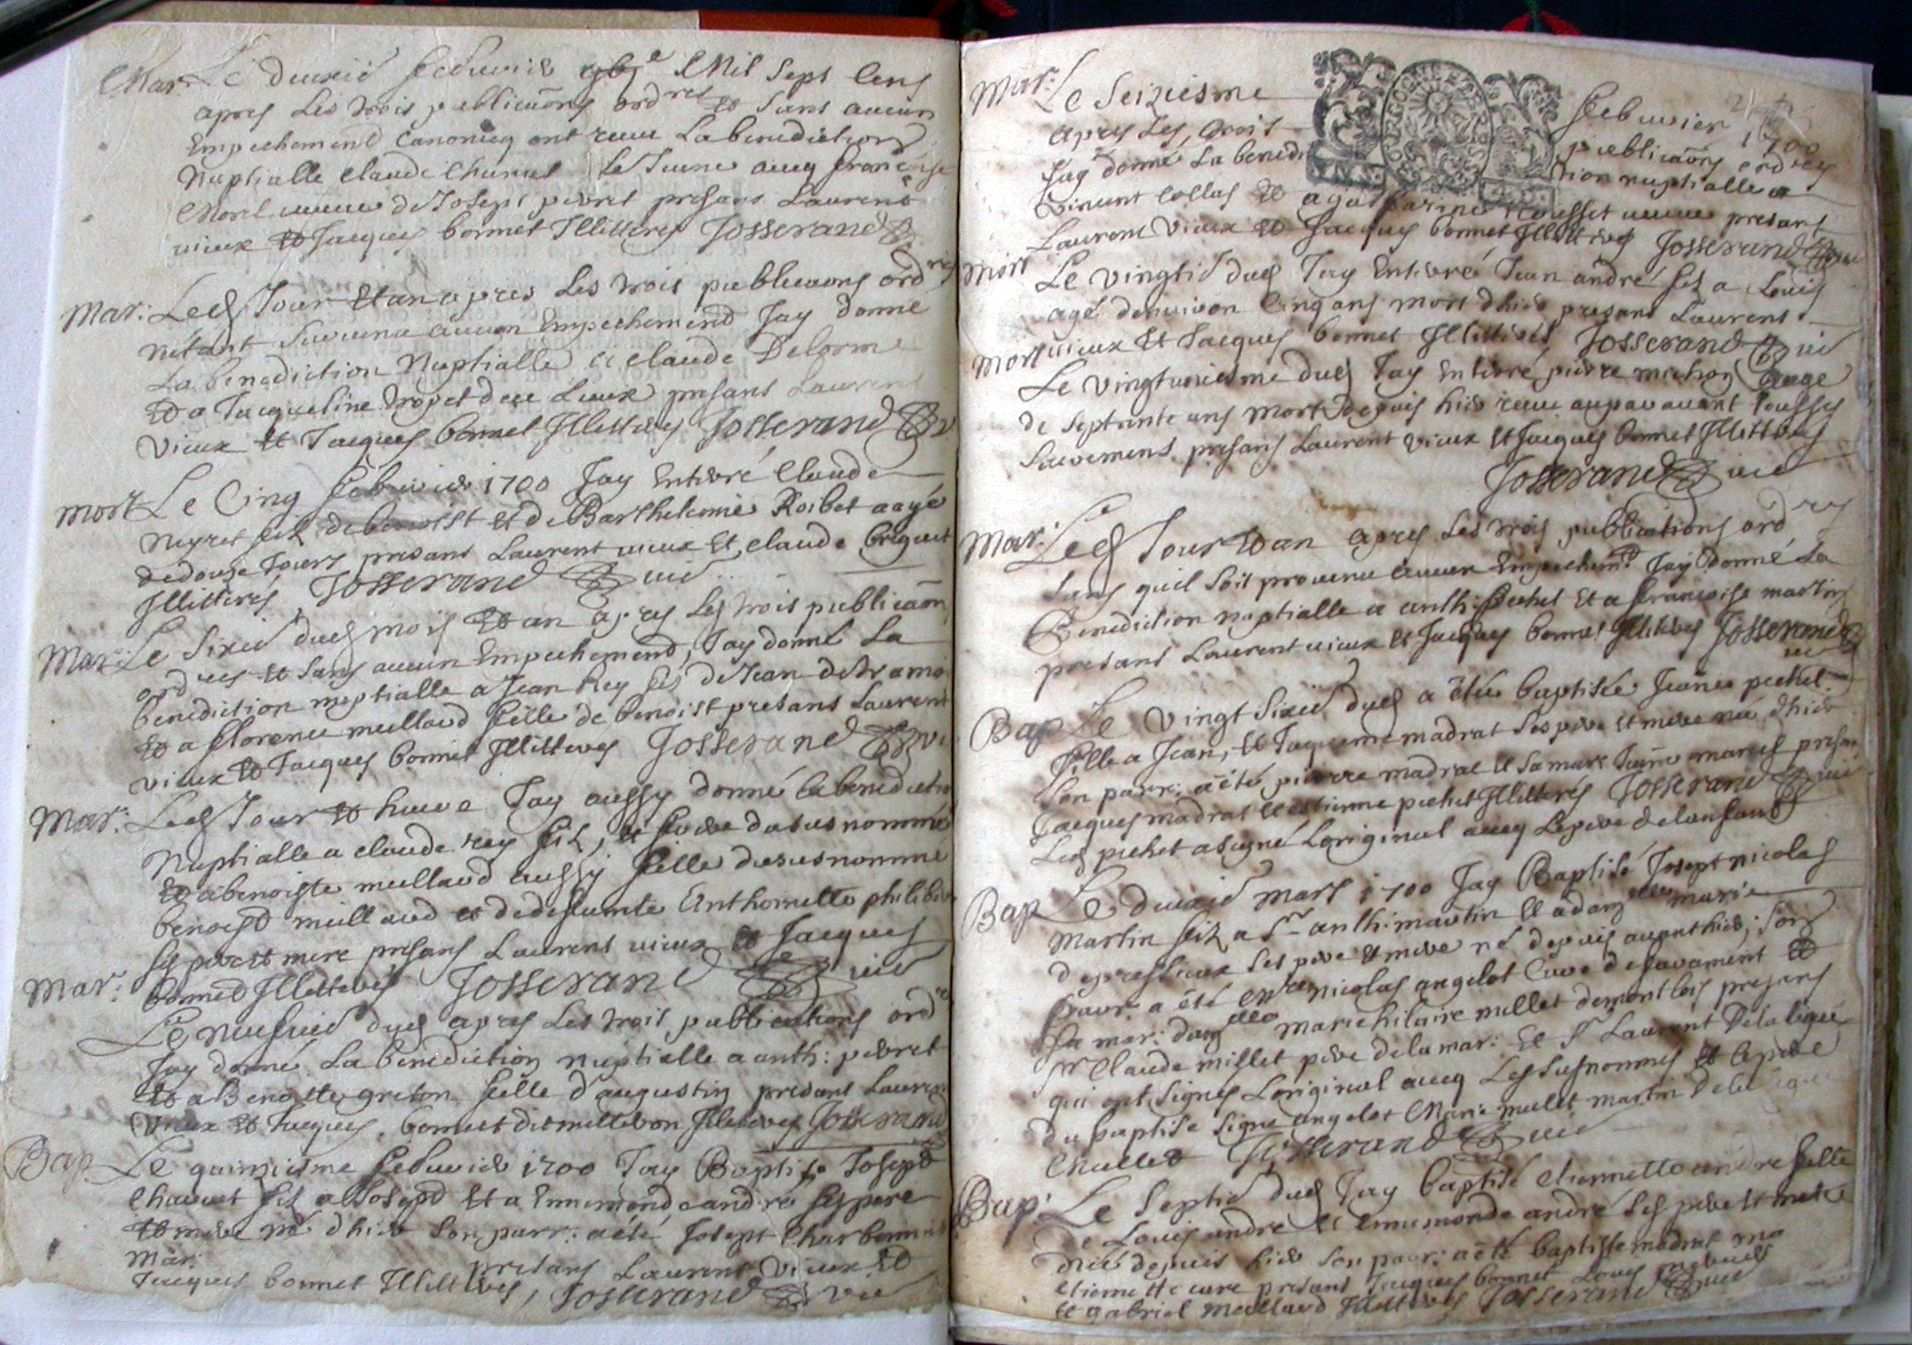 Mar: Le deuxié febvrier Mil sept Cens
apres les trois publicaons ordres et sans aucun
Empechement Canonicq ont receu La benediction
Nuptialle claude Chunel le Jeune avecq francoise
Morel veuve de Josept pivret presans Laurent
vieux et Jacques bonnet Jllitteres Josserand
Mar: Led Jour et an apres Les trois publicaons ordres
netant survenu aucun Empechemend Jay donne
La benediction Nuptialle a claude Delorme
et a Jacqueline presans Laurent
vieux et Jacques bonnet Jllitteres Josserand
mort Le Cinq febvrier 1700 Jay Enterré Claude
Neyret filz de benoist et de Barthelemie Roibet aagé
de douze Jours presans Laurent vieux et claude briquet
Jllitteres Josserand vic
Mar: Le sixié dud mois et an apres les trois publicaon
ordres et sans aucun Empechemend Jay donné La
benediction nuptialle a Jean Rey filz de Jean
et a florence meillaud fille de benoist presans Laurent
vieux et Jacques bonnet Jllitteres Josserand
Mar: Led Jour et heure Jay aussy donné la benedictio
Nuptialle a claude rey filz, et frere dususnommé
et a benoiste meillaud aussy fille dususnommé
benoist meillaud et de defunte Anthoinette philibe
ses pere et mere presans Laurens vieux et Jacques
bonnet Jllitteres Josserand vic
Mar: Le neufvié dud apres Les trois publications ord
Jay donné La benediction nuptialle a anth: pivret
et a Benoitte greton fille d'augustin presans Laurent
vieux et Jacques bonnet dit milleton Jlliteres Josserand
Bap Le quinziesme febvrier 1700 Jay Baptise Josept
Chauvet filz a Josept et a Ennemonde andre ses pere
et mere né d'hier son parr: a été Josept Charbonni
mar:
presans Laurent Vieux et
Jacques bonnet Jllitteres, Josserand vic
Mar: Le Seiziesme febvrier 1700
apres Les trois publicaons ordres
Jay donné La benediction nuptialle a
vincent collas et a rousset veuve presant
Laurent Vieux et Jacques bonnet Jllitteres Josserand
mort Le vingtié dud Jay Enterré Jean andré filz a Louis
agé denviron Cinq ans mort d'hier presans Laurent
vieux et Jacques bonnet Jllitteres Josserand vic
mort Le vingtuniesme dud Jay Enterré pierre michon auge
de septante ans mort depuis hier receu auparavant tousses
sacremens presans Laurent vieux et Jacques bonnet Jllitteres
Josserand vic
Mar: Led Jour et an apres Les trois publications ordres
sans quil soit provenu aucun Empechemt Jay donné La
Benediction nuptialle a anth: pichet et a francoise martin
presans Laurent vieux et Jacques bonnet Jllitteres Josserand
vic
Bap Le vingt sixié dud a été baptisée Jeanne pichet
fille a Jean, et Jaqueme madrat ses pere et mere née d'hier
son parr: a été pierre madrat et sa marr: Janne presans
Jacques madrat et estienne pichet Jllitterés Josserand vic
Led pichet a signé Loriginal avecq Le pere de lenfant
Bap Le deuxié mars 1700 Jay Baptisé Josept nicolas
martin filz a Sr anth: martin et a damlle marie
ses pere et mere né depuis avanthier, son
parr: a été Mre nicolas angelot Curé de et
sa mar: damlle marie hilaire millet de presens
Sr Claude millet pere de la mar: et Sr Laurent
qui ont signés Loriginal avecq Les susnommés et le pere
du baptisé signe angelot Marie millet martin
Millet Josserand vic
Bap: Le septié dud Jay baptisé etiennette andre fille
de Louis andre et ennemonde andré ses pere et mere
née depuis hier son parr: a été baptiste madrat ma
etiennette cure presans Jacques bonnet
et gabriel meillaud Jllitteres Josserand vic